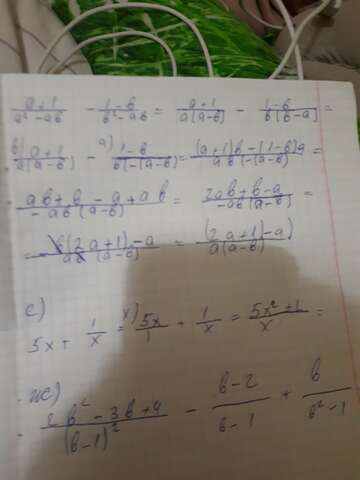 (a+1)/(a²-ab) - (1-b)/(b²-ab) = (a+1)/(a(a-b)) - (1-b)/(b(b-a)) =
b) (a+1)/(a(a-b)) - a) (1-b)/(b(-(a-b)) = ((a+1)b-(1-b)a)/(ab(-(a-b)) =
(ab+b-a+ab)/(-ab(a-b)) = (2ab+b-a)/(-ab(a-b)) =
= (b(2a+1)-a)/(ab(a-b)) = ((2a+1)-a)/(a(a-b))
е)
5x + 1/x = x) 5x/1 + 1/x = (5x²+1)/x =
ж)
(2b²-3b+4)/(b-1)² - (b-2)/(b-1) + b/(b²-1)